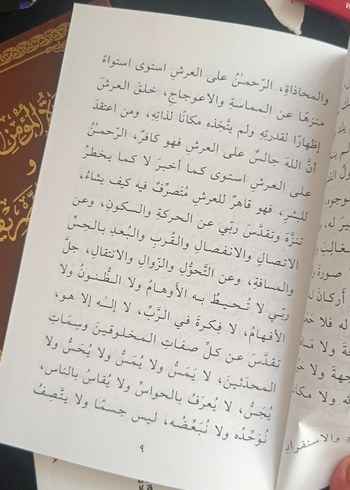 والمحاذاةِ، الرّحمـٰنُ على العرشِ استوى استواءً
منزهًا عن المماسّةِ والاعوجاجِ، خلقَ العرشَ
إظهارًا لقدرتِهِ ولم يتَّخِذه مكانًا لذاتِهِ، ومن اعتقدَ
أنَّ اللهَ جالسٌ على العرشِ فهو كافرٌ، الرّحمـٰنُ
على العرشِ استوى كما أخبرَ لا كما يخطرُ
للبشرِ، فهو قاهرٌ للعرشِ مُتَصَرِّفٌ فيه كيف يشاءُ،
تنزَّهَ وتقدَّسَ ربّي عن الحركةِ والسكونِ، وعن
الاتصالِ والانفصالِ والقُربِ والبُعدِ بالحِسِّ
والمسافةِ، وعن التَّحوُّلِ والزّوالِ والانتقالِ، جلَّ
ربّي لا تُـحيـطُ به الأوهـامُ ولا الظُّـنونُ ولا
الأفهامُ، لا فِكرةَ في الرَّبِّ، لا إلـٰه إلا هو،
تقدَّسَ عن كلِّ صفاتِ المخلوقينَ وسِمَاتِ
المحدَثينَ، لا يَمَسُّ ولا يُمَسُّ ولا يُحَسُّ ولا
يُجَسُّ، لا يُعرَفُ بالحواسِّ ولا يُقاسُ بالناسِ،
نُوَحِّدُه ولا نُبَعِّضُه، ليس جسمًا ولا يتَّصِفُ
٩